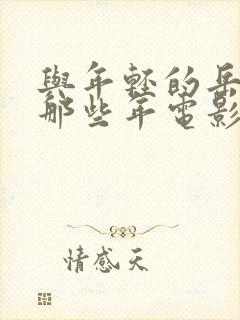 與年輕的岳
那些年電影
情感天